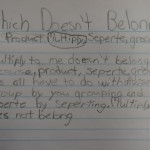 Which Doesn't Belong
Product Multiply Seperte, group
Multiply to me doesn't belong
product, seperte, group
all have to do with
group by you grouping and
seperte by seperting. Multiply
does not belong